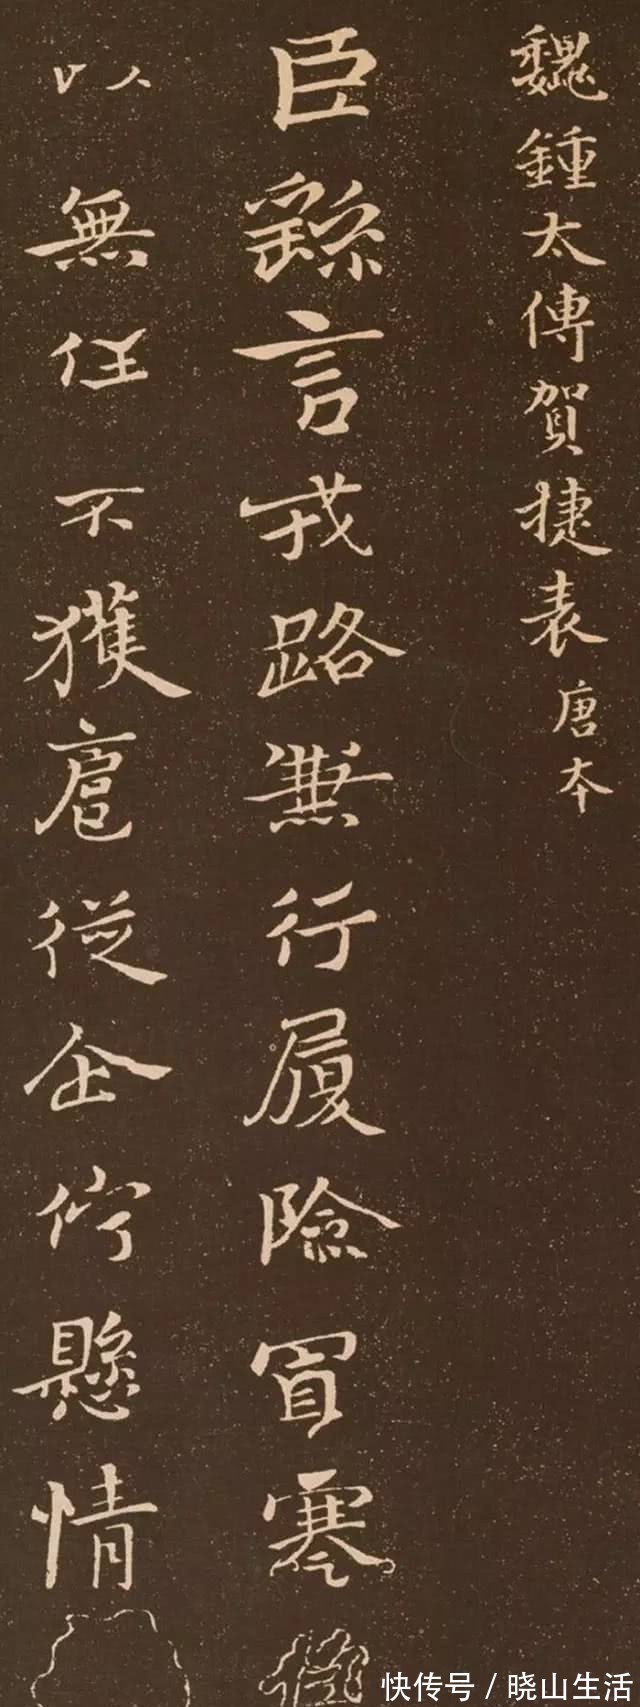 魏鍾太傅賀捷表唐本
臣繇言戎路兼行履險冒寒
以無任不獲扈從企佇懸情
快传号/晓山生活